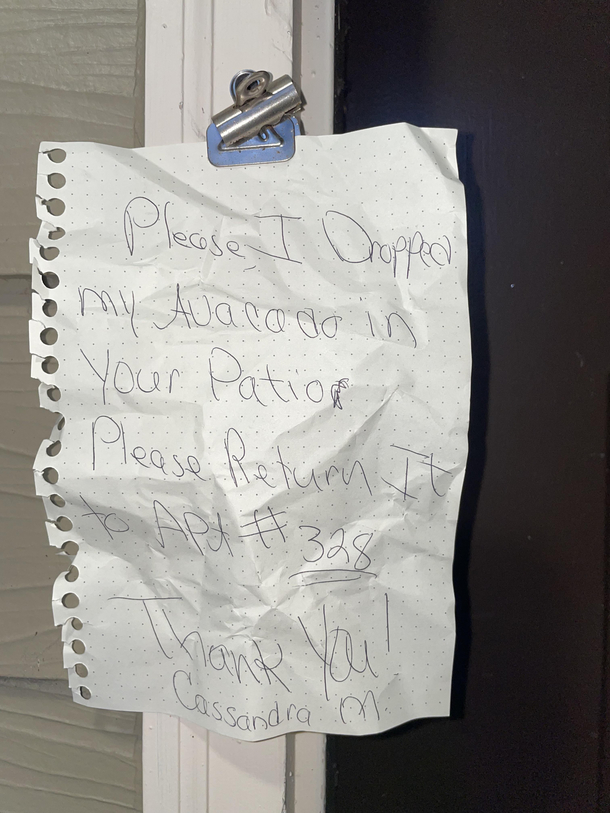 Please I Dropped
my Avacado in
Your Patio
Please Return It
to Apt # 328
Thank You!
Cassandra M.